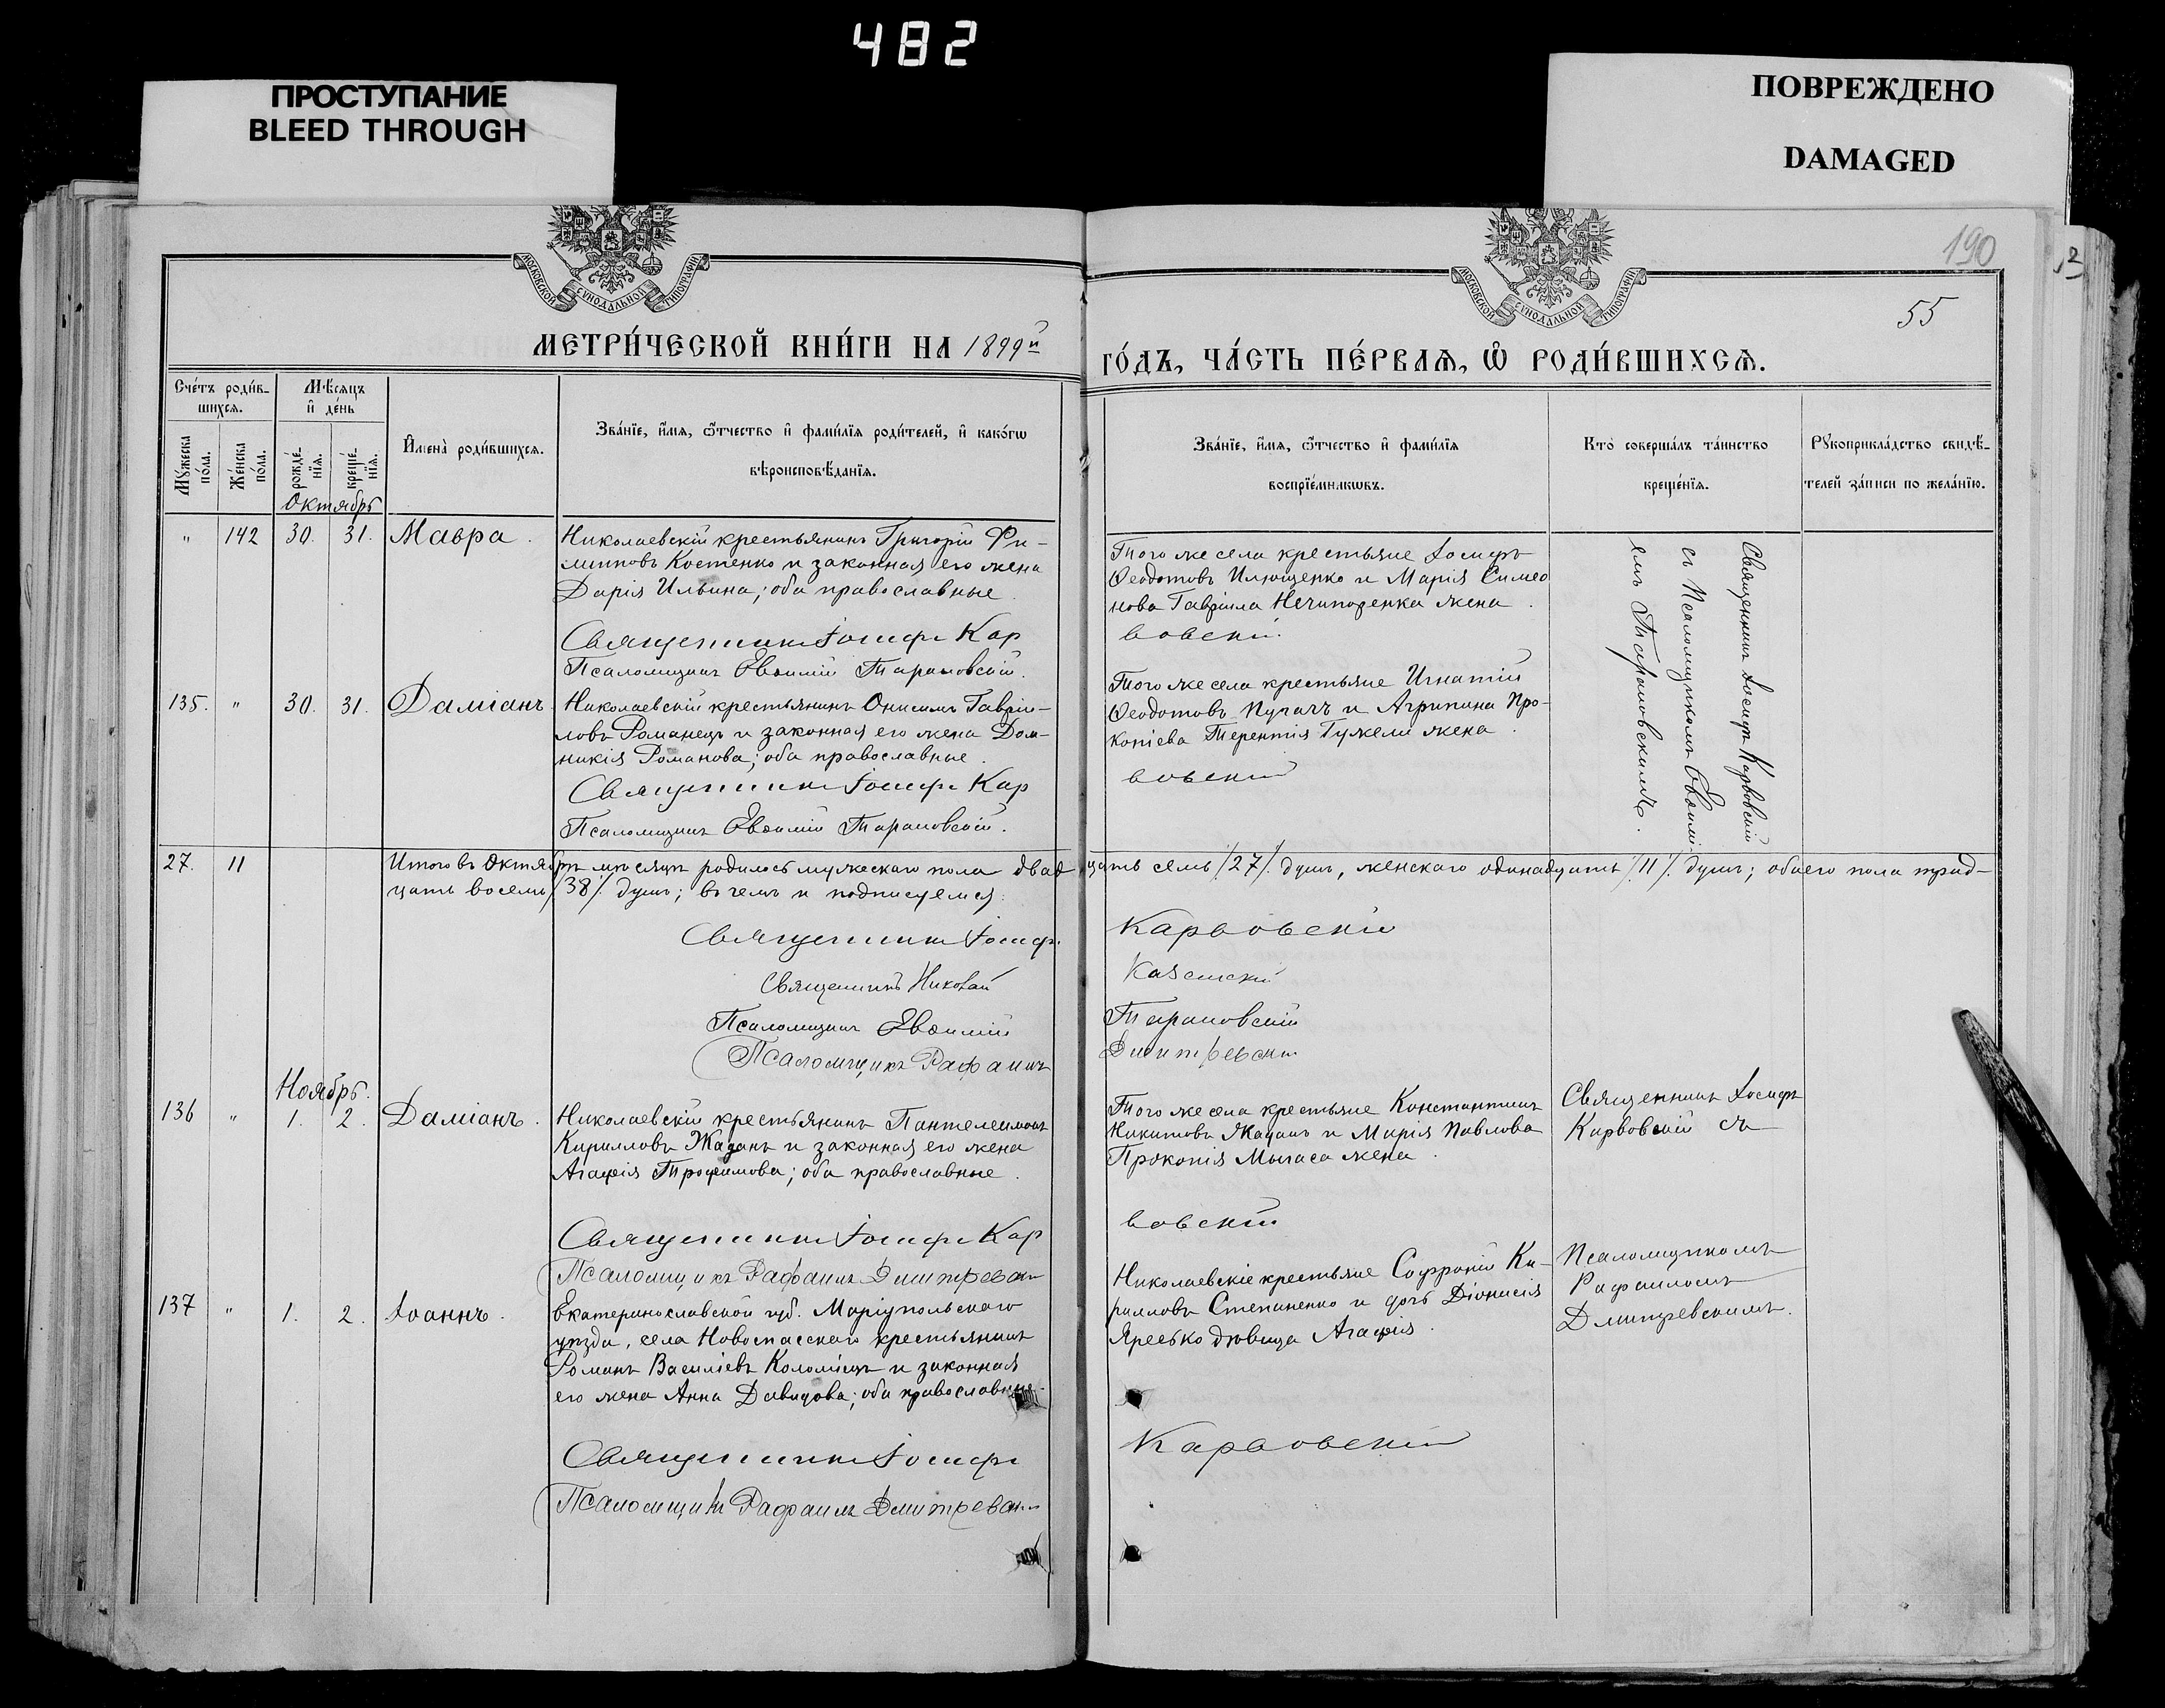 482
ПРОСТУПАНИЕ
BLEED THROUGH
ПОВРЕЖДЕНО
DAMAGED
190
55
МОСКОВСКОЙ СѴНОДАЛЬНОЙ ТИПОГРАФІИ
МОСКОВСКОЙ СѴНОДАЛЬНОЙ ТИПОГРАФІИ
МЕТРИ́ЧЕСКОЙ КНИ́ГИ НА 1899й
ГО́ДЪ, ЧА́СТЬ ПЕ́РВАѦ, Ѡ҆ РОДИ́ВШИХСѦ.
Сче́тъ роди́в-
шихсѧ.
Мѣсѧцъ
и҆ де́нь
Мꙋ́жеска
по́ла.
Же́нска
по́ла.
рожде́-
нїѧ.
креще́-
нїѧ.
И҆мена̀ роди́вшихсѧ.
Зва́нїе, и҆́мѧ, ѿтчество и҆ фами́лїѧ роди́телей, и҆ како́гѡ
вѣроисповѣ́данїѧ.
Зва́нїе, и҆́мѧ, ѿтчество и҆ фами́лїѧ
воспрїе́мникѡвъ.
Кто̀ соверша́лъ та́инство
креще́нїѧ.
Рꙋкоприкла́дство свидѣ́-
телей за́писи по жела́нїю.
Октябрь
" 142 30. 31. Мавра.
Николаевскій крестьянинъ Григорій Фи-
липповъ Костенко и законная его жена
Дарія Ильина; оба православные.
Священникъ Іосифъ Кар
Псаломщикъ Евѳимій Тарановскій.
Того же села крестьяне Іосифъ
Ѳеодотовъ Илющенко и Марія Симео
нова Гавріила Нечипоренка жена.
вовскій.
Священникъ Іосифъ Карвовскій
съ Псаломщикомъ Евѳимі-
емъ Тарановскимъ.
135. " 30. 31. Даміанъ.
Николаевскій крестьянинъ Онисимъ Гаврі-
ловъ Романецъ и законная его жена Дом-
никія Романова; оба православные.
Священникъ Іосифъ Кар
Псаломщикъ Евѳимій Тарановскій.
Того же села крестьяне Игнатій
Ѳеодотовъ Пугачъ и Агрипина Про-
копіева Терентія Гужели жена.
вовскій
27. 11 Итого въ Октябрѣ мѣсяцѣ родилось мужескаго пола двадцать семь /27/. душъ, женскаго одинадцать /11/. душъ; обоего пола трид-
цать восемь /38/. душъ; въ чемъ и подписуемся:
Священникъ Іосифъ Карвовскій
Священникъ Николай
Псаломщикъ Евѳимій Тарановскій
Псаломщикъ Рафаилъ Дмитревскій
Ноябрь.
136 " 1. 2. Даміанъ.
Николаевскій крестьянинъ Пантелеимонъ
Кирилловъ Жаданъ и законная его жена
Агафія Трофимова; оба православные.
Священникъ Іосифъ Кар
Псаломщикъ Рафаилъ Дмитревскій
Того же села крестьяне Константинъ
Никитовъ Жаданъ и Марія Павлова
Прокопія жена.
вовскій
Священникъ Іосифъ
Карвовскій съ
Псаломщикомъ
Рафаиломъ
Дмитревскимъ.
137 " 1. 2. Іоаннъ.
Екатеринославской губ. Маріупольскаго
уѣзда, села Новоспасскаго крестьянинъ
Романъ Василіевъ Коломіецъ и законная
его жена Анна Давидова; оба православные.
Священникъ Іосифъ
Псаломщикъ Рафаилъ Дмитревскій
Николаевскіе крестьяне Софроній Ки-
рилловъ Степаненко и дочь Діонисія
Яресько дѣвица Агафія.
Карвовскій